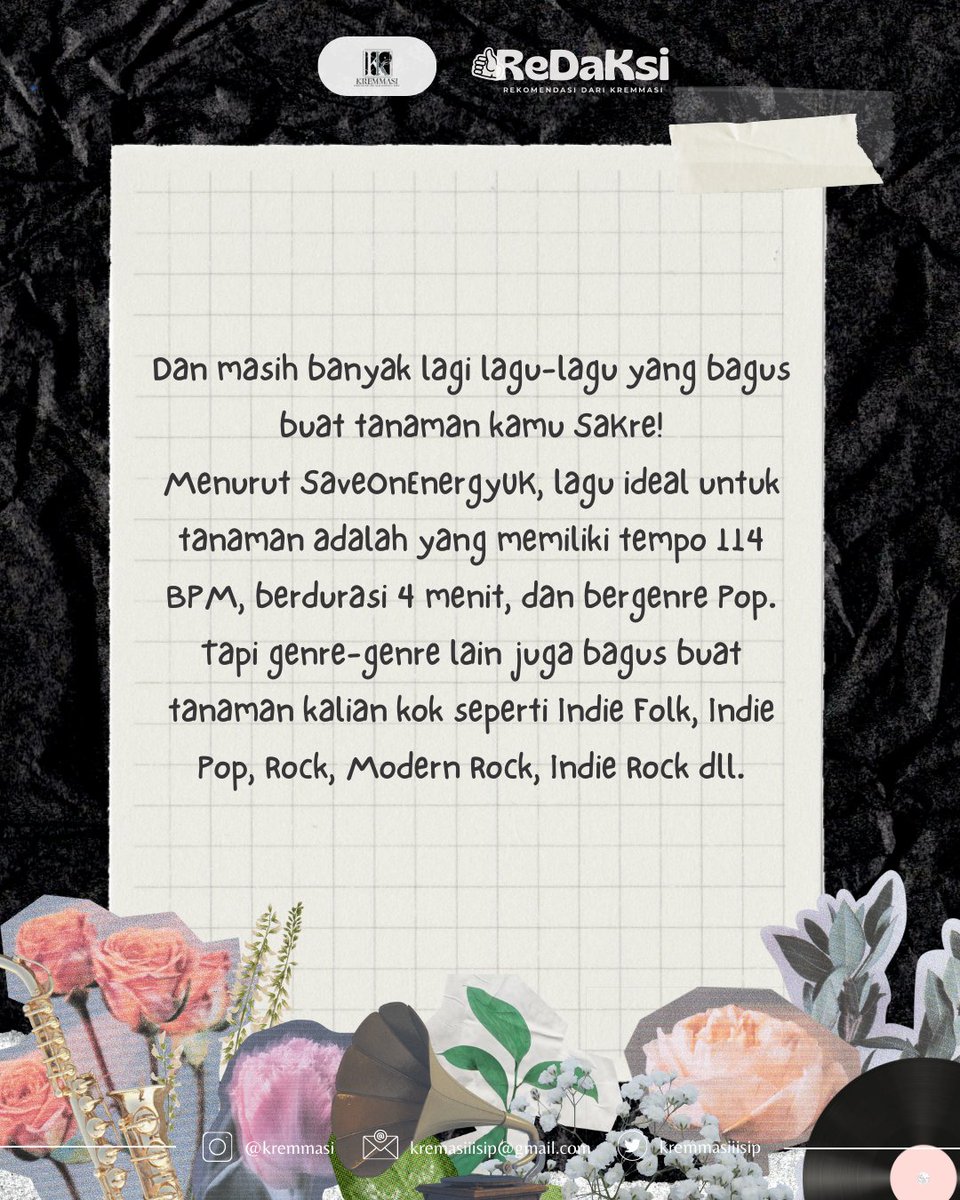 KREMMASI
ReDaKsi
REKOMENDASI DARI KREMMASI
Dan masih banyak lagi lagu-lagu yang bagus
buat tanaman kamu SaKre!
Menurut SaveOnEnergyUK, lagu ideal untuk
tanaman adalah yang memiliki tempo 114
BPM, berdurasi 4 menit, dan bergenre Pop.
Tapi genre-genre lain juga bagus buat
tanaman kalian kok seperti Indie Folk, Indie
Pop, Rock, Modern Rock, Indie Rock dll.
@kremmasi
kremasiiisip@gmail.com
kremmasiiisip